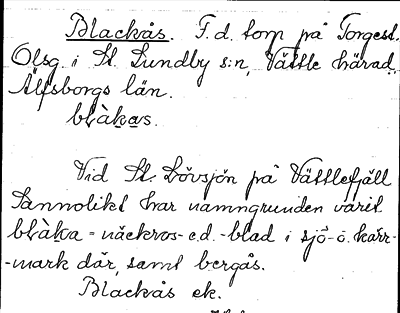 Blackås. F.d. torp på Torgest.
Ölsg. i St. Lundby s:n, Vättle härad,
Älfsborgs län.
blàkas.
Vid St. Lövsjön på Vättlefjäll
Sannolikt har namngrunden varit
blàka = näckros- e.d. -blad i sjö- o. kärr-
-mark där, samt bergås.
Blackås ek.